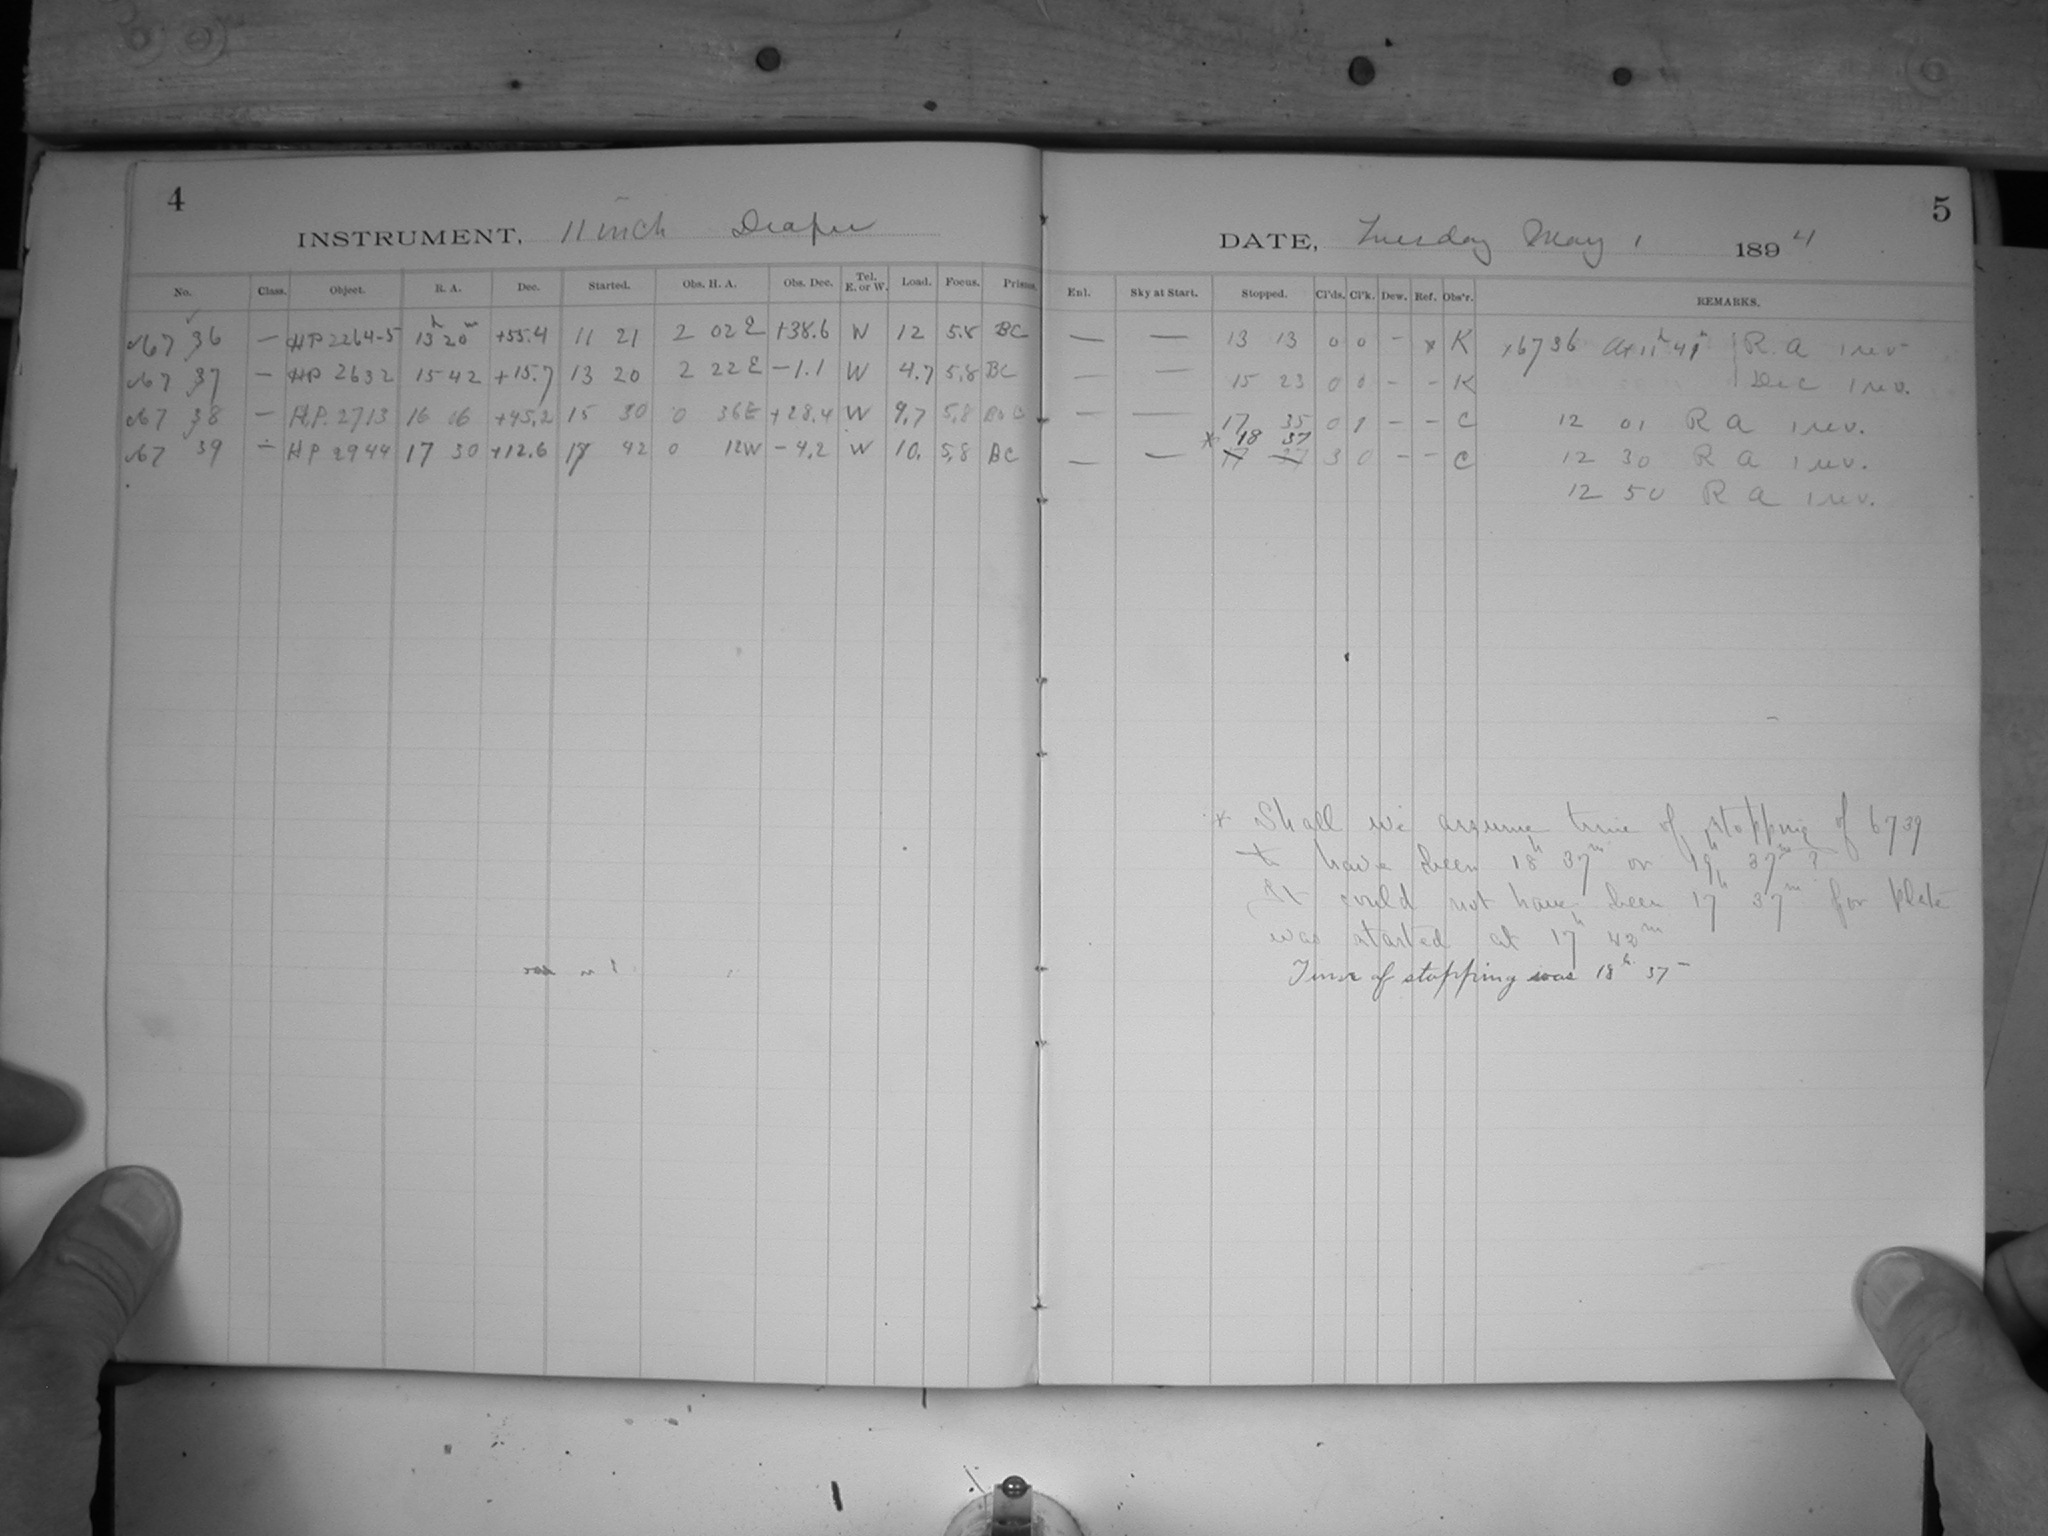 4
INSTRUMENT, 11 inch Draper
No. Class. Object. R. A. Dec. Started. Obs. H. A. Obs. Dec. Tel. E. or W. Load. Focus. Prisms.
6736 — HP 2264-5 13h 20m +55.4 11 21 2 02 E +38.6 W 12 5.8 BC
6737 — HP 2632 15 42 +15.7 13 20 2 22 E -1.1 W 4.7 5.8 BC
6738 — H.P. 2713 16 06 +45.2 15 30 0 36E +28.4 W 9.7 5.8
6739 — HP 2944 17 30 +12.6 17 42 0 12W -4.2 W 10. 5.8 BC
5
DATE, Tuesday May 1 1894
Enl. Sky at Start. Stopped. Cl'ds. Cl'k. Dew. Ref. Obs'r. REMARKS.
— — 13 13 0 0 - x K x 6736 At 11h 41m R.A 1 rev
— — 15 23 0 0 - - K Dec 1 rev.
— — 17 35 0 1 - - C 12 01 R A 1 rev.
* 18 37
— — 17 37 3 0 - - C 12 30 R A 1 rev.
12 50 R A 1 rev.
* Shall we assume time of stopping of 6739
to have been 18h 37m or 19h 37m ?
It could not have been 17h 37m for plate
was started at 17h 42m
Time of stopping was 18h 37